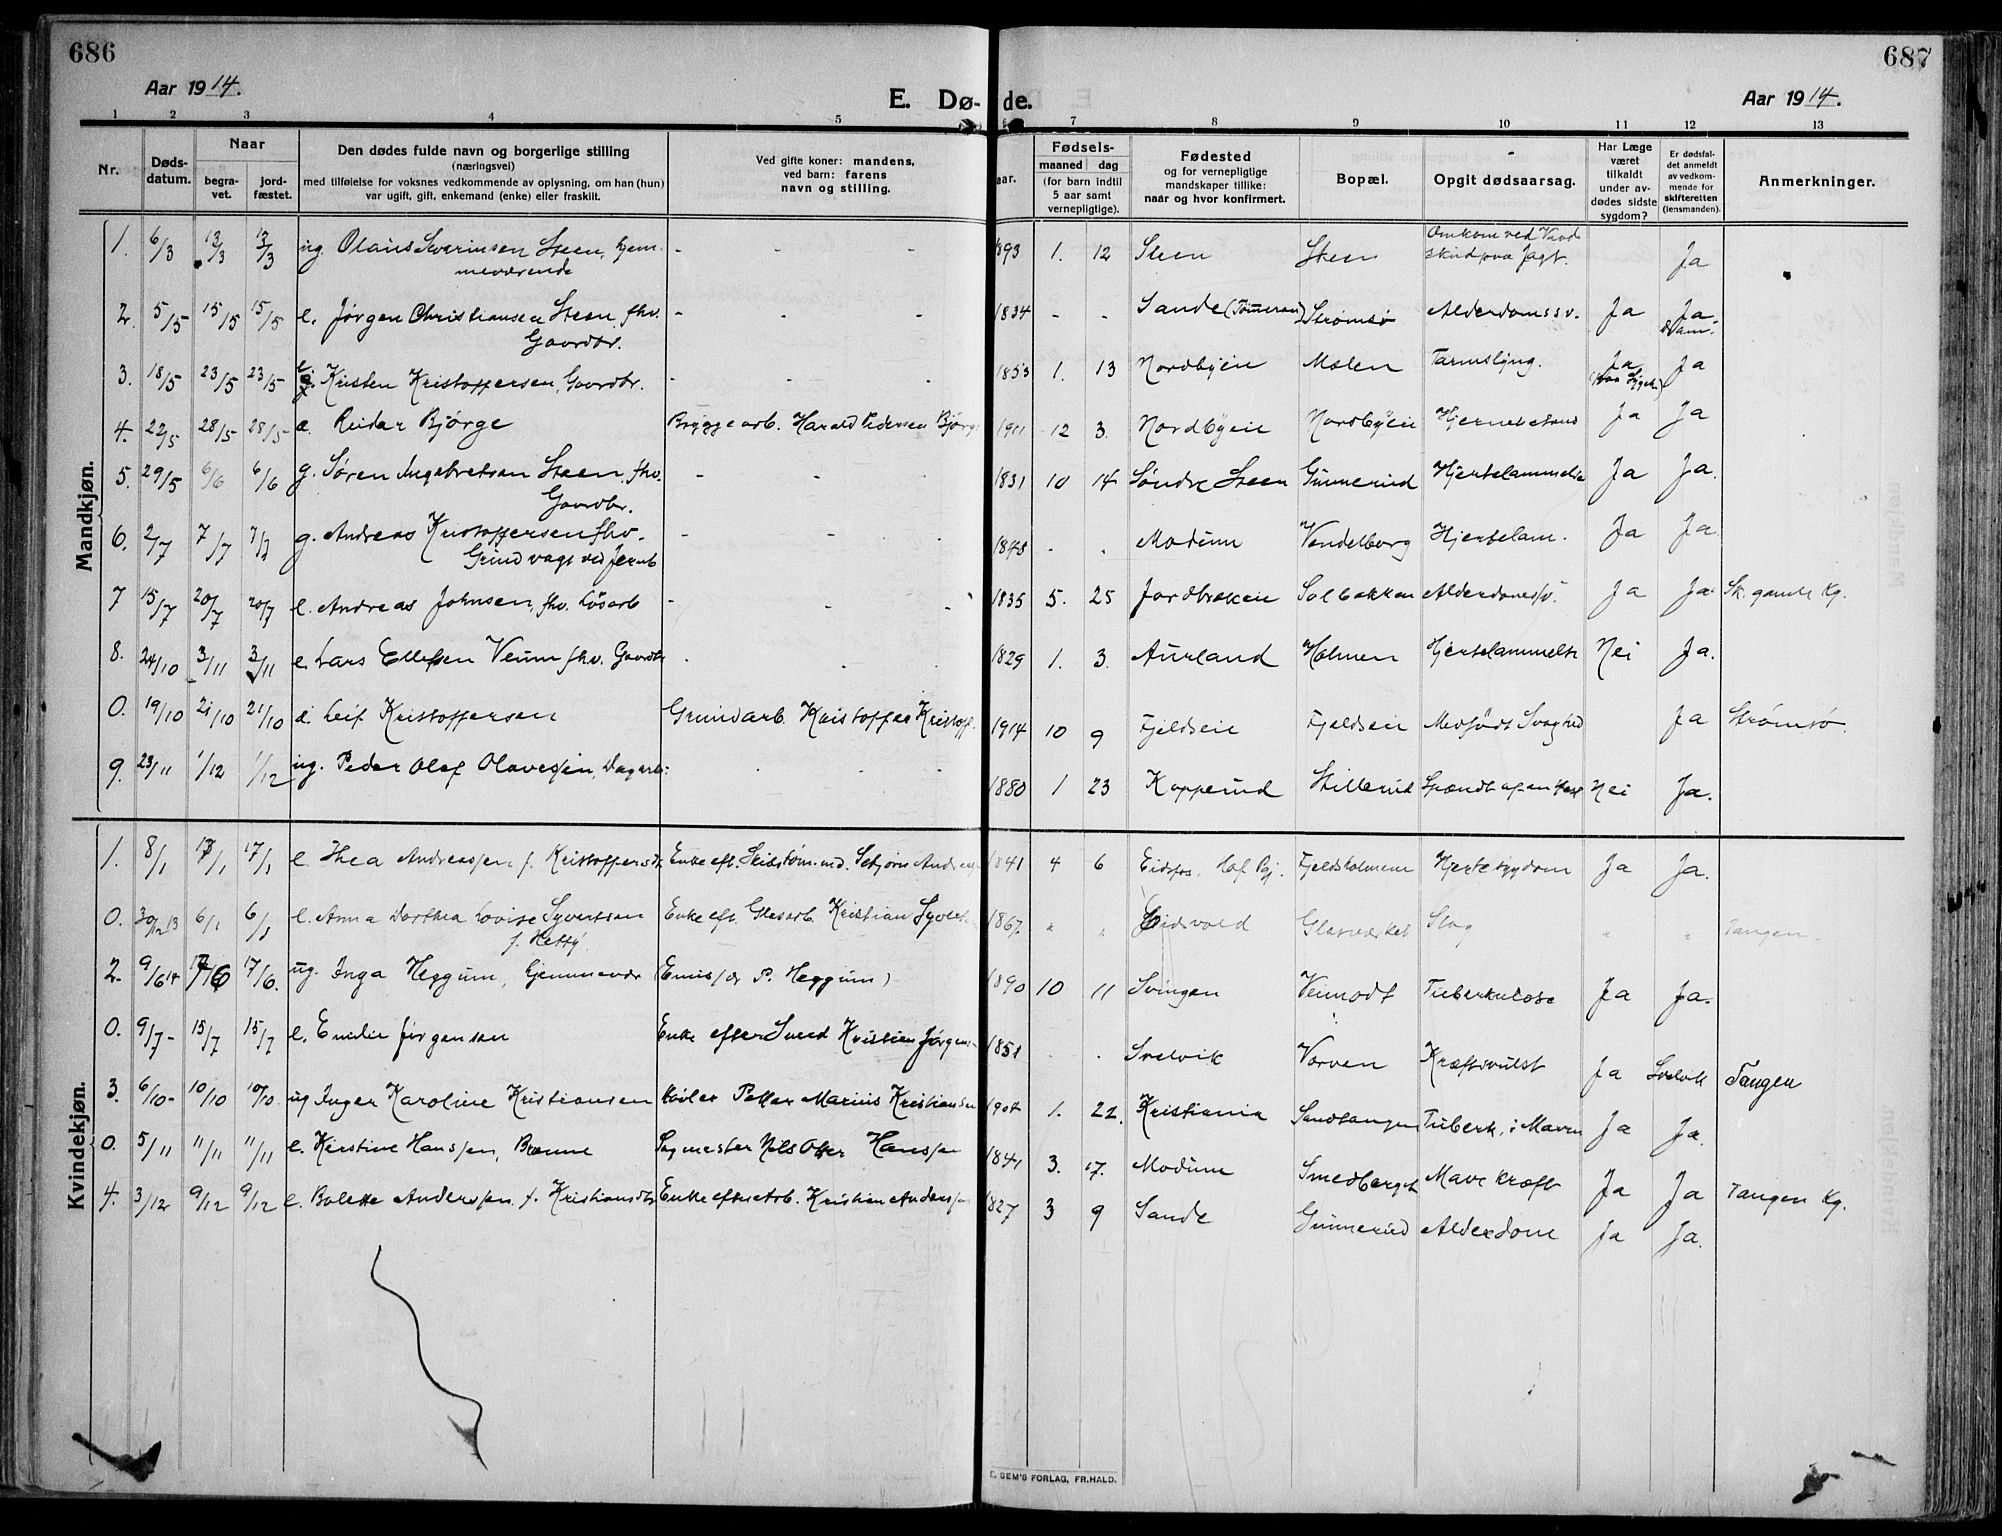 686
687
Aar 1914.
E. Dø-
de.
Aar 1914.
1 2 3 4 5 7 8 9 10 11 12 13
Nr.
Dødsdatum.
Naar
begravet.
jordfæstet.
Den dødes fulde navn og borgerlige stilling
(næringsvei)
med tilføielse for voksnes vedkommende av oplysning, om han (hun)
var ugift, gift, enkemand (enke) eller fraskilt.
Ved gifte koner: mandens,
ved barn: farens
navn og stilling.
Fødsels-
aar.
maaned
dag
(for barn indtil
5 aar samt
vernepligtige).
Fødested
og for vernepligtige
mandskaper tillike:
naar og hvor konfirmert.
Bopæl.
Opgit dødsaarsag.
Har Læge
været
tilkaldt
under av-
dødes sidste
sygdom?
Er dødsfal-
det anmeldt
av vedkom-
mende for
skifteretten
(lensmanden).
Anmerkninger.
Mandkjøn.
1. 6/3 13/3 13/3 ug. Olaus Severinsen Steen, hjem- - - - 1893 1. 12 Steen Steen Omkom ved Vaade Ja
meværende skud paa Jagt.
2. 5/5 15/5 15/5 e. Jørgen Christiansen Steen, fhv. - - - 1834 - - Sande Strømsø Alderdomssv. Ja Ja
Gaardbr.
3. 18/5 23/5 23/5 Kristen Kristoffersen, Gaardbr. - - - 1853 1. 13 Nordbyeie Molen Tarmslyng. Ja Ja
4. 22/5 28/5 28/5 Reidar Bjørge Bryggearb. Harald Pedersen Bjørge 1911 12 3. Nordbyeie Nordbyeie Ja Ja
5. 29/5 6/6 6/6 g. Søren Ingebretsen Steen, fhv. - - - 1831 10 14 Søndre Steen Gunnerud Hjertelammelse Ja Ja.
Gaardbr.
6. 2/7 7/7 7/7 g. Andreas Kristoffersen fhv. - - - 1848 - - Modum Vendelborg Hjertelam. Ja Ja
Grindvagt ved Jernb
7 15/7 20/7 20/7 e. Andreas Johnsen, fhv. Løsarb - - - 1835 5. 25 Jordbrækeie Solbakken Alderdomssv. Ja Ja. Sk. gamle Kg.
8. 24/10 3/11 3/11 e. Lars Ellefsen Veum fhv. Gaardbr . . . 1829 1. 3. Aurland Holmen Hjertelammelse Nei Ja.
0. 19/10 21/10 21/10 Leif Kristoffersen Grundarb. Kristoffer Kristoff. 1914 10 9 Fjeldseie Fjeldseie Medfødt Svaghed Ja Strømsø.
9. 23/11 1/12 1/12 ug. Peder Olaf Olavessen, Dagarb: . . . 1880 1 23 Kopperud Stillerud Spændt af en Hest Nei Ja.
Kvindekjøn.
1. 8/1 17/1 17/1 e. Thea Andreassen, f. Kristoffersdt. Enke eft. Skibstømmd. Andreas 1841 4 6 Eidsfos, Hof Pgj. Fjeldsholmene Hjertesygdom Ja Ja.
0. 30/12 13 6/1 6/1 e. Anna Dorthea Lovise Syvertsen Enke eft. Glasarb. Kristian Syverts 1867. " " Eidsvold Glasværket Slag " " Tangen.
f. Hetty
2. 9/6 14 17/6 17/6. ug. Inga Heggum, hjemmevær (Emissær P. Heggum) 1890 10 11 Svingen Veimodt Tuberkulose Ja Ja.
0. 9/7 - 15/7 15/7 e. Emilie Jørgensen Enke efter Smed Kristian Jørgens- 1851 . . Svelvik Varven Kræftsvulst Ja Svelvik Tangen
3. 6/10- 10/10 10/10. ug Inger Karoline Kristiansen Høvler Petter Marius Kristiansen 1904 1. 22. Kristiania Sandtangen Tuberk. i Maven Ja Ja.
0. 5/11 11/11 11/11 e. Kirstine Hanssen, Brenne Sagmester Nils Otter Hanssen 1841 3. 17. Modum Smedberget Mavekræft Ja Ja Tangen Kg.
4. 3/12 9/12 9/12 e. Bolette Anderssen f. Kristiansdt. Enke efter Arb. Kristian Anderssen 1827 3 9 Sande Gunnerud Alderdom Ja Ja.
E. SEM'S FORLAG, FR.HALD.